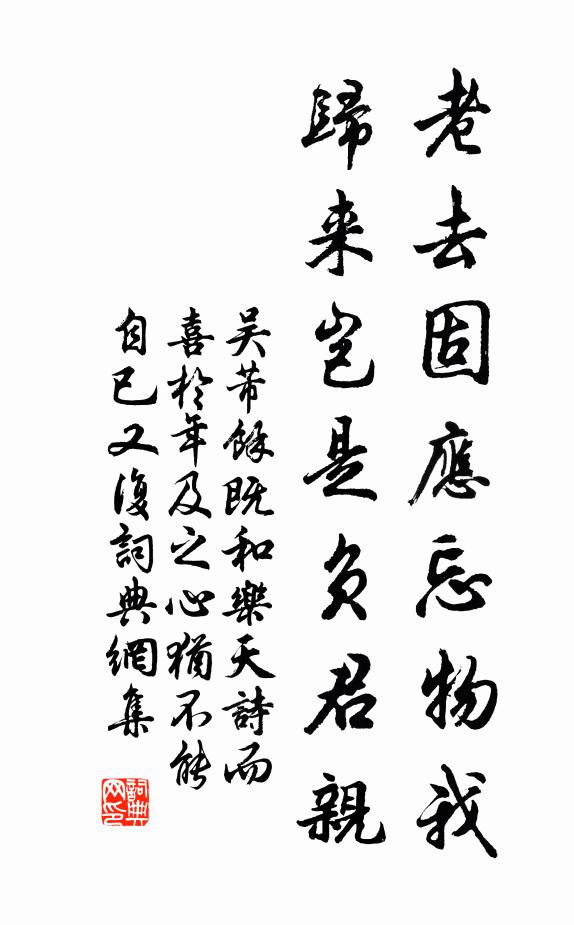 老去固應忘物我
歸来豈是負君親
吴芾餘既和樂天詩而
喜於年及之心猶不能
自已又復詞典網集
詞典网印